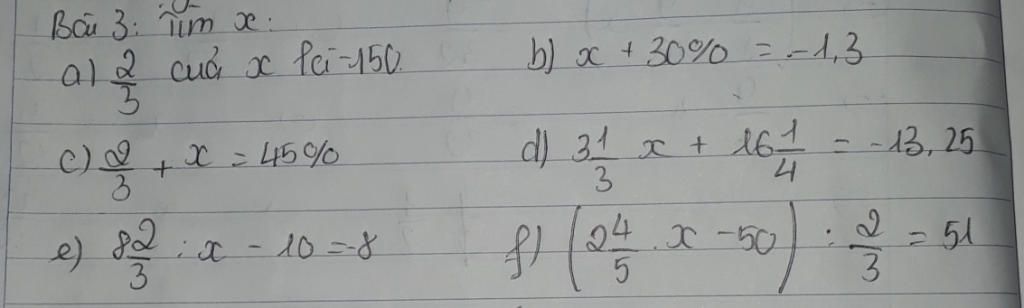 Bài 3: Tìm x:
a) 2/3 của x là -150. b) x + 30% = -1,3
c) 2/3 + x = 45% d) 3 1/3 x + 16 1/4 = -13,25
e) 8 2/3 : x - 10 = -8 f) (2 4/5 . x - 50) : 2/3 = 51